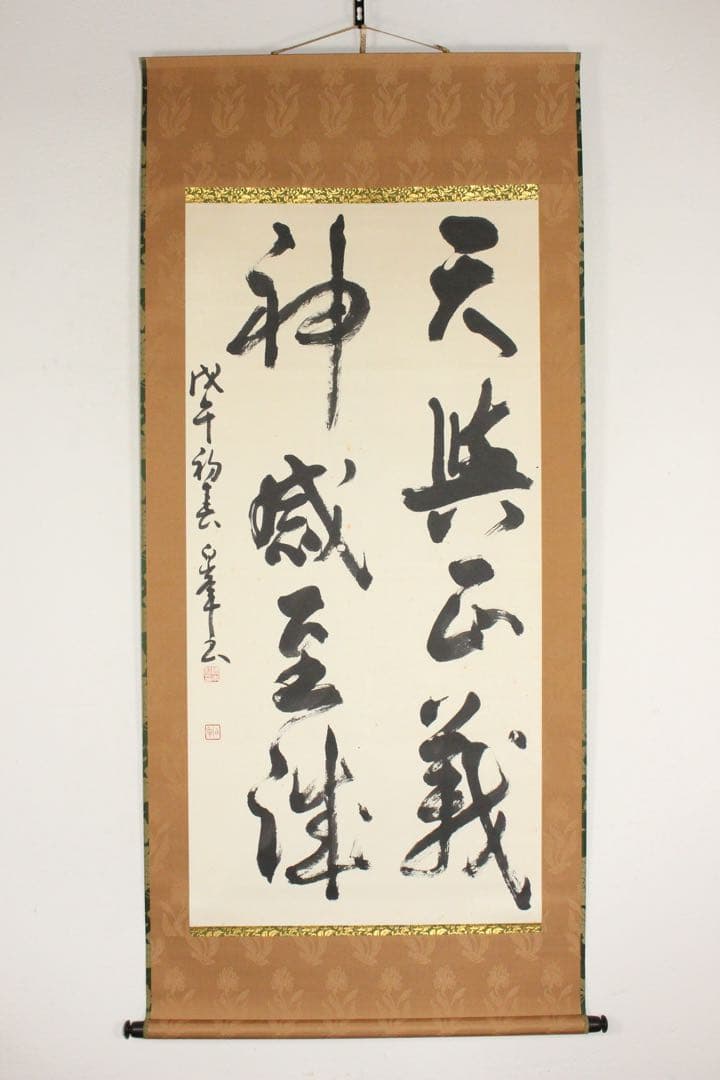 天與正義
神感至誠
戊午初春